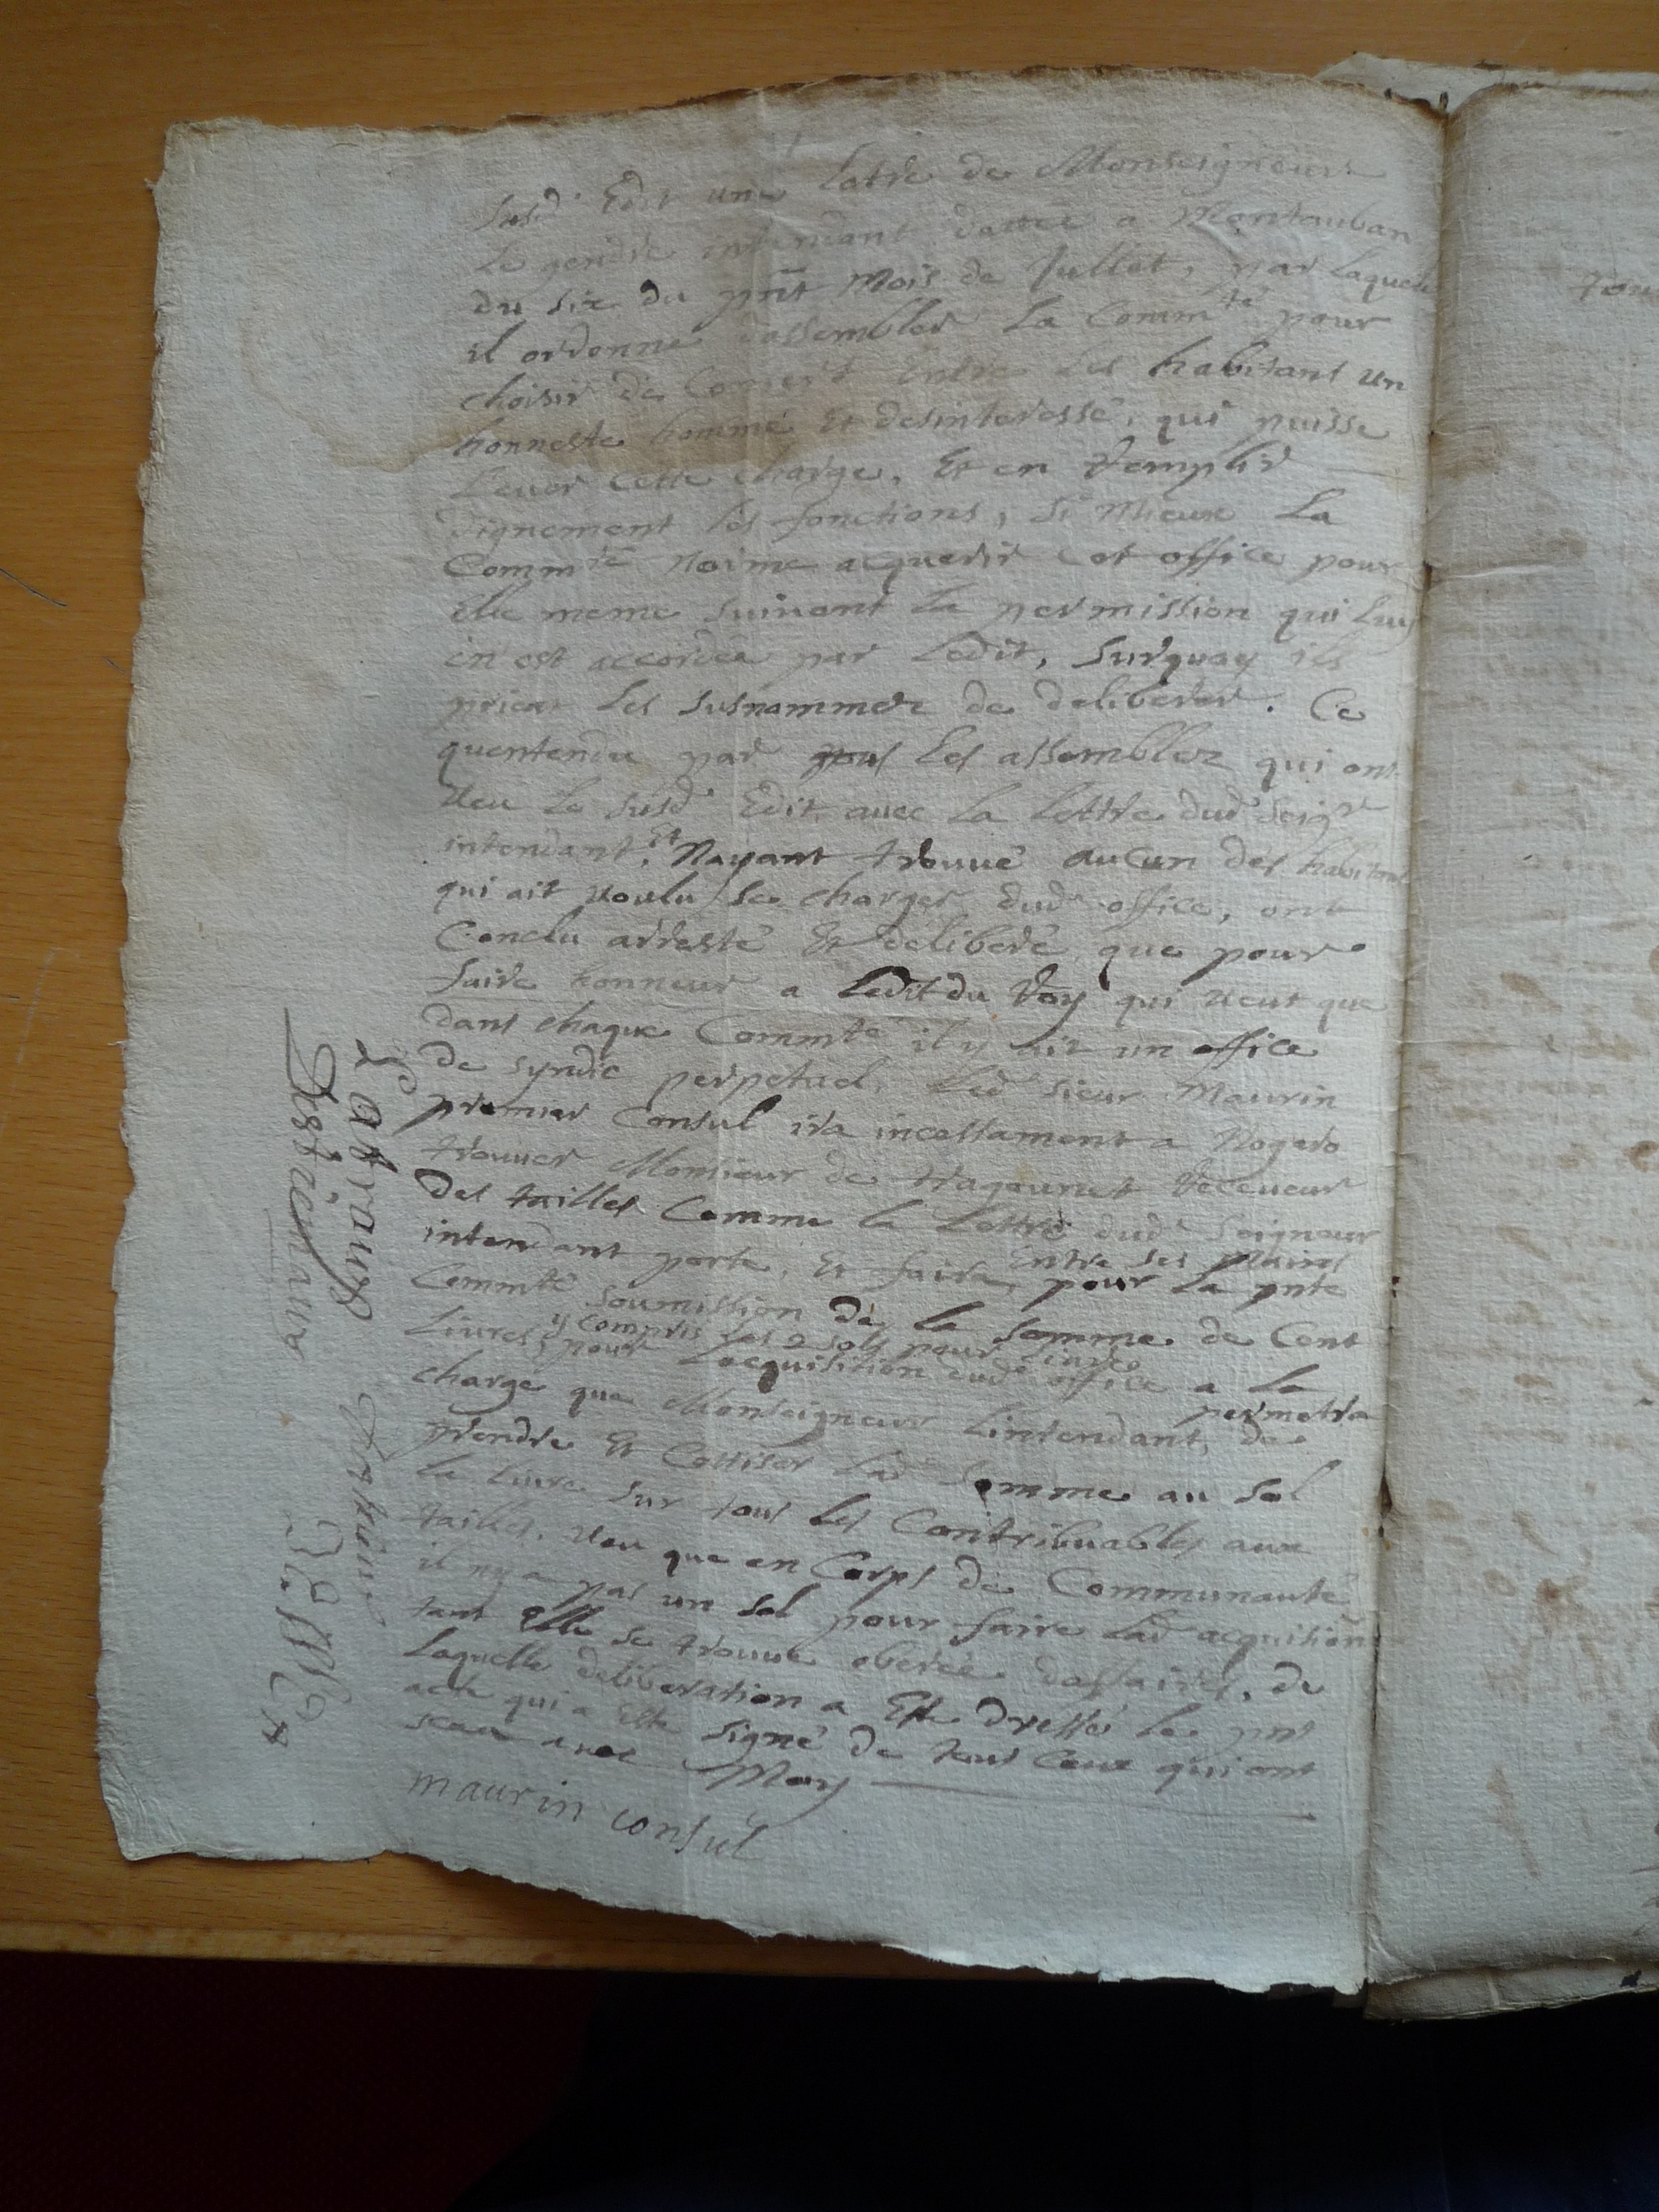 susd. Edit une lettre de Monseigneur
le gendre intendant dattée a Montauban
du six du pnt mois de Jullet, par laquelle
il ordonne dassembler la Commte pour
choisir de concert entre les habitans un
honneste homme Et desinteressé, qui puisse
lever cette charge, Et en remplir
dignement les fonctions, si mieux la
Commte n'aime acquerir cet office pour
elle meme suivant la permission qui luy
en est accordée par ledit, surquoy ils
prient les susnommez de deliberer. Ce
quentendu par les assemblez qui ont
veu le susd. Edit avec la lettre dud. Seigr
intendant, Et Nayant trouvé aucun des habitans
qui ait voulu se charger dud. office, ont
Conclu arresté Et deliberé, que pour
faire honneur a ledit du Roy qui veut que
dans chaque Commte il y ait un office
de syndic perpetuel, led. sieur Maurin
premier Consul ira incessament a Nogaro
trouver Monsieur de Receveur
des tailles Comme la lettre dud. Seigneur
intendant porte, Et faire, Entre ses mains pour la pnte
Commte soumission de la somme de Cent
Livres, y compris les 2 sols pour livre pour Lacquisition dud. office a la
charge que Monseigneur Lintendant, permetra de
prendre Et Cottiser lad. somme au sol
la livre sur tous les Contribuables aux
tailles, veu que en Corps de Communauté
il ny a pas un sol pour faire lad. acquition
tant Elle se trouve oberée daffaires, de
Laquelle deliberation a Esté dressé le pnt
acte qui a Esté signé de tous Ceux qui ont
sceu avec Moy
maurin consul